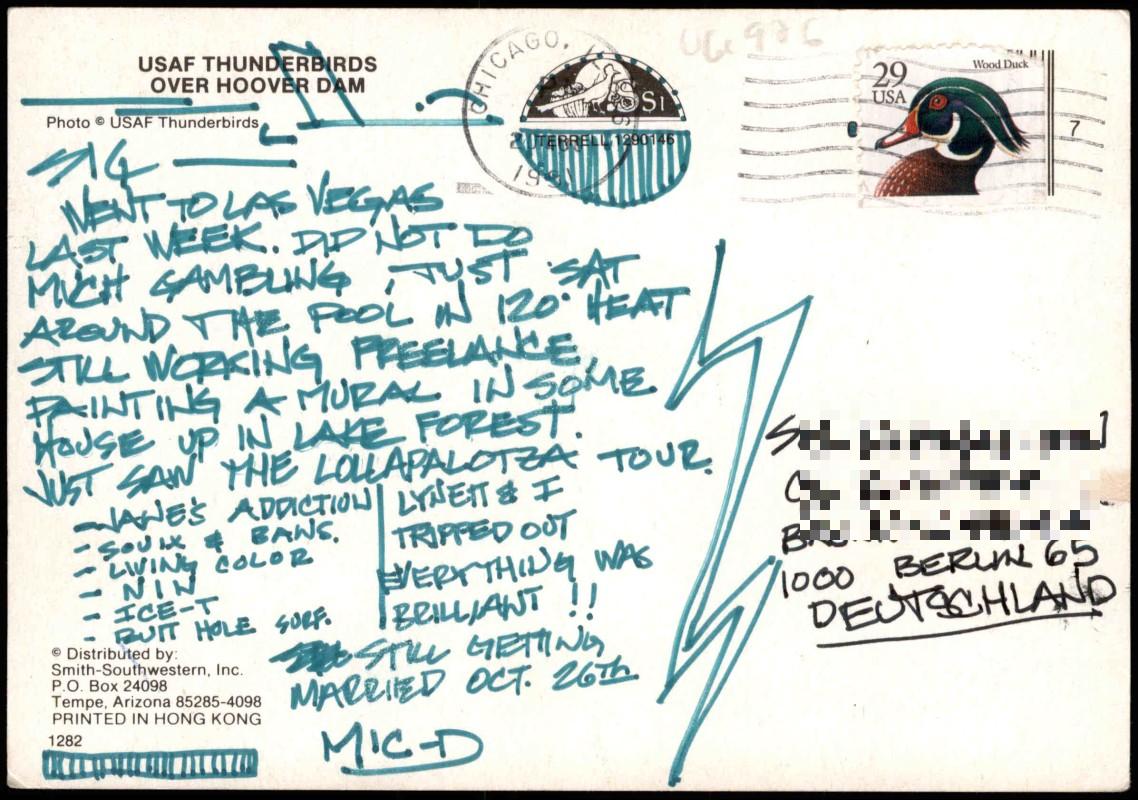 USAF THUNDERBIRDS
OVER HOOVER DAM
Photo © USAF Thunderbirds
CHICAGO, IL
1991
SSi
TERRELL 1290146
29
USA
Wood Duck
7
SIG
WENT TO LAS VEGAS
LAST WEEK. DID NOT DO
MICH GAMBLING, JUST SAT
AROUND THE POOL IN 120° HEAT
STILL WORKING FREELANCE,
PAINTING A MURAL IN SOME
HOUSE UP IN LAKE FOREST.
JUST SAW THE LOLLAPALOTZA TOUR.
- JANE'S ADDICTION
- SOUIX & BANS.
- LIVING COLOR
- NIN
- ICE-T
- BUTT HOLE SURF.
LYNETT & I
TRIPPED OUT
EVERYTHING WAS
BRILLIANT !!
STILL GETTING
MARRIED OCT. 26TH
MIC-D
© Distributed by:
Smith-Southwestern, Inc.
P.O. Box 24098
Tempe, Arizona 85285-4098
PRINTED IN HONG KONG
1282
1000 BERLIN 65
DEUTSCHLAND